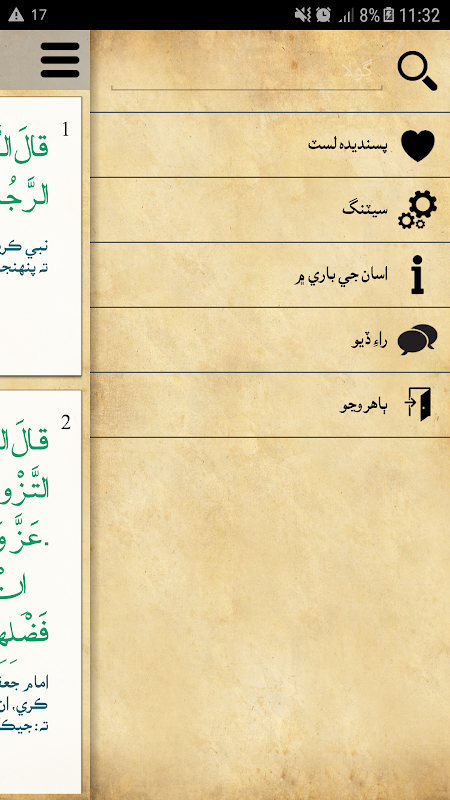 17
8%
11:32
ڳولا
پسنديده لسٽ
سيٽنگ
اسان جي باري ۾
راءِ ڏيو
ٻاهر وڃو
1
قالَ
الرَّجُ
نبي ڪر
تہ پنهنج
2
قالَ
التَّزْو
عَزَّ وَ
فَضْلِهِ
امام جعف
ڪري، ان
تہ: جيڪ